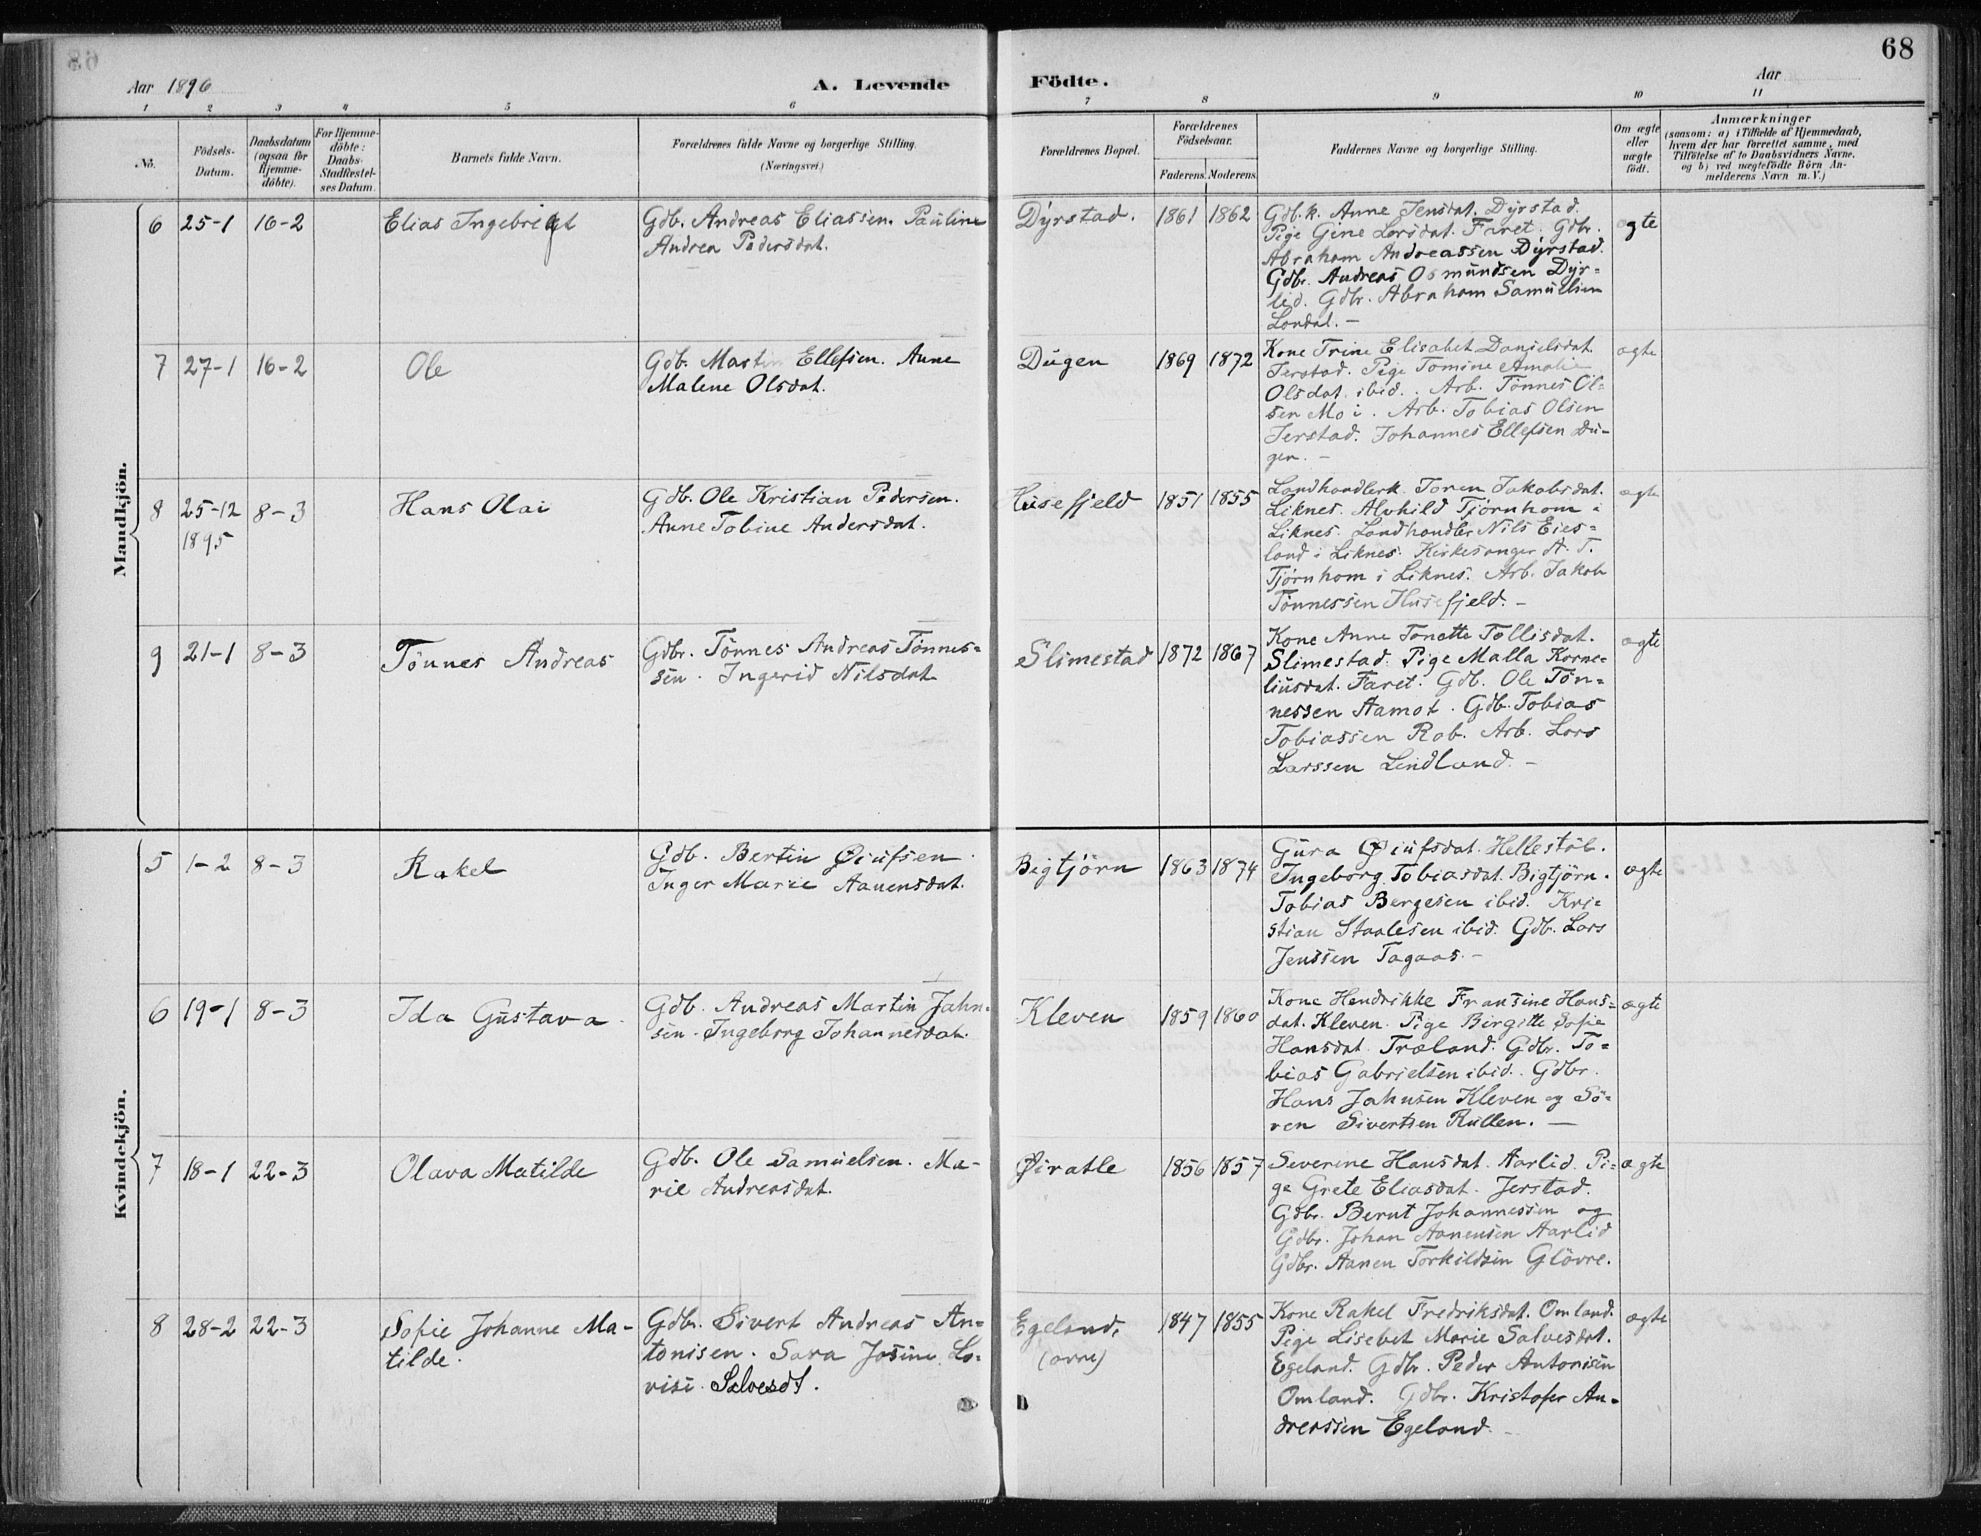 68
Aar 1896
A. Levende Födte.
Aar
1 2 3 4 5 6 7 8 9 10 11
No.
Födsels-Datum.
Daabsdatum (ogsaa for Hjemme-döbte).
For Hjemme-döbte: Daabs-Stadfæstel-ses Datum.
Barnets fulde Navn.
Forældrenes fulde Navne og borgerlige Stilling. (Næringsvei.)
Forældrenes Bopæl.
Forældrenes Födselsaar.
Faderens. Moderens.
Faddernes Navne og borgerlige Stilling.
Om ægte eller uægte født.
Anmærkninger
(saasom: a) i Tilfælde af Hjemmedaab,
hvem der har forrettet samme, med
Tilföielse af to Daabsvidners Navne,
og b) ved uægtefödte Börn An-
melderens Navn m. V.)
Mandkjön.
6 25-1 16-2 Elias Ingebrigt
Gdb. Andreas Eliassen. Pauline
Andrea Pedersdat.
Dyrstad. 1861 1862
Gdb.k. Anne Jensdat. Dyrstad.
Pige Gine Larsdat. Faret. Gdbr.
Abraham Andreassen Dyrstad.
Gdbr. Andreas Osmundsen Dyr-
lid. Gdbr. Abraham Samuelsen
Londal. -
ægte
7 27-1 16-2 Ole
Gdb. Martin Ellefsen. Anne
Malene Olsdat.
Dugen 1869 1872
Kone Trine Elisabet Danjelsdat.
Jerstad. Pige Tomine Amalie
Olsdat. ibid. Arb. Tönnes Ol-
sen Moi. Arb. Tobias Olsen
Jerstad. Johannes Ellefsen Du-
gen. -
ægte
8 25-12 8-3 Hans Olai
1895
Gdb. Ole Kristian Pedersen.
Anne Tobine Andersdat.
Husefjeld 1851 1855
Landhandlerk. Toren Jakobsdat.
Liknes. Alvhild Tjörnhom i
Liknes. Landhandler Nils Eies-
land i Liknes. Kirkesanger A. T.
Tjörnhom i Liknes. Arb. Jakob
Tönnessen Husefjeld. -
ægte
9 21-1 8-3 Tönnes Andreas
Gdbr. Tönnes Andreas Tönnes-
sen. Ingerid Nilsdat.
Slimestad 1872 1867
Kone Anne Tonette Tollisdat.
Slimestad. Pige Malla Korne-
liusdat. Faret. Gdb. Ole Tön-
nessen Aamot. Gdb. Tobias
Tobiassen Rob. Arb. Lars
Larssen Lindland. -
ægte
Kvindekjön.
5 1-2 8-3 Rakel
Gdb. Bertin Øiufsen.
Inger Marie Aanensdat.
Bigtjörn 1863 1874
Gura Øiufsdat. Hellestöl.
Ingeborg Tobiasdat. Bigtjörn.
Tobias Bergesen ibid. Kri-
stian Staalesen ibid. Gdb. Lars
Jenssen Tagaas. -
ægte
6 19-1 8-3 Ida Gustava
Gdb. Andreas Martin Jahn-
sen. Ingeborg Johannesdat.
Kleven 1859 1860
Kone Hendrikke Fransine Hans-
dat. Kleven. Pige Birgitte Sofie
Hansdat. Træland. Gdbr. To-
bias Gabrielsen ibid. Gdbr.
Hans Jahnsen Kleven og Sö-
ren Sivertsen Rullen. -
ægte
7 18-1 22-3 Olava Matilde
Gdb. Ole Samuelsen. Ma-
rie Andreasdat.
Øiratle 1856 1857
Severine Hansdat. Aarlid. Pi-
ge Grete Eliasdat. Jerstad.
Gdbr. Bernt Johannessen og
Gdbr. Johan Aanensen Aarlid
Gdbr. Aanen Torkildsen Glövre.
ægte
8 28-2 22-3 Sofie Johanne Ma-
tilde.
Gdbr. Sivert Andreas An-
tonisen. Sara Josine Lo-
vise. Salvesdt.
Egeland, 1847 1855
(övre)
Kone Rakel Fredriksdat. Omland.
Pige Lisebet Marie Salvesdat.
Egeland. Gdbr. Peder Antonisen
Omland. Gdbr. Kristofer An-
dreassen Egeland.
ægte